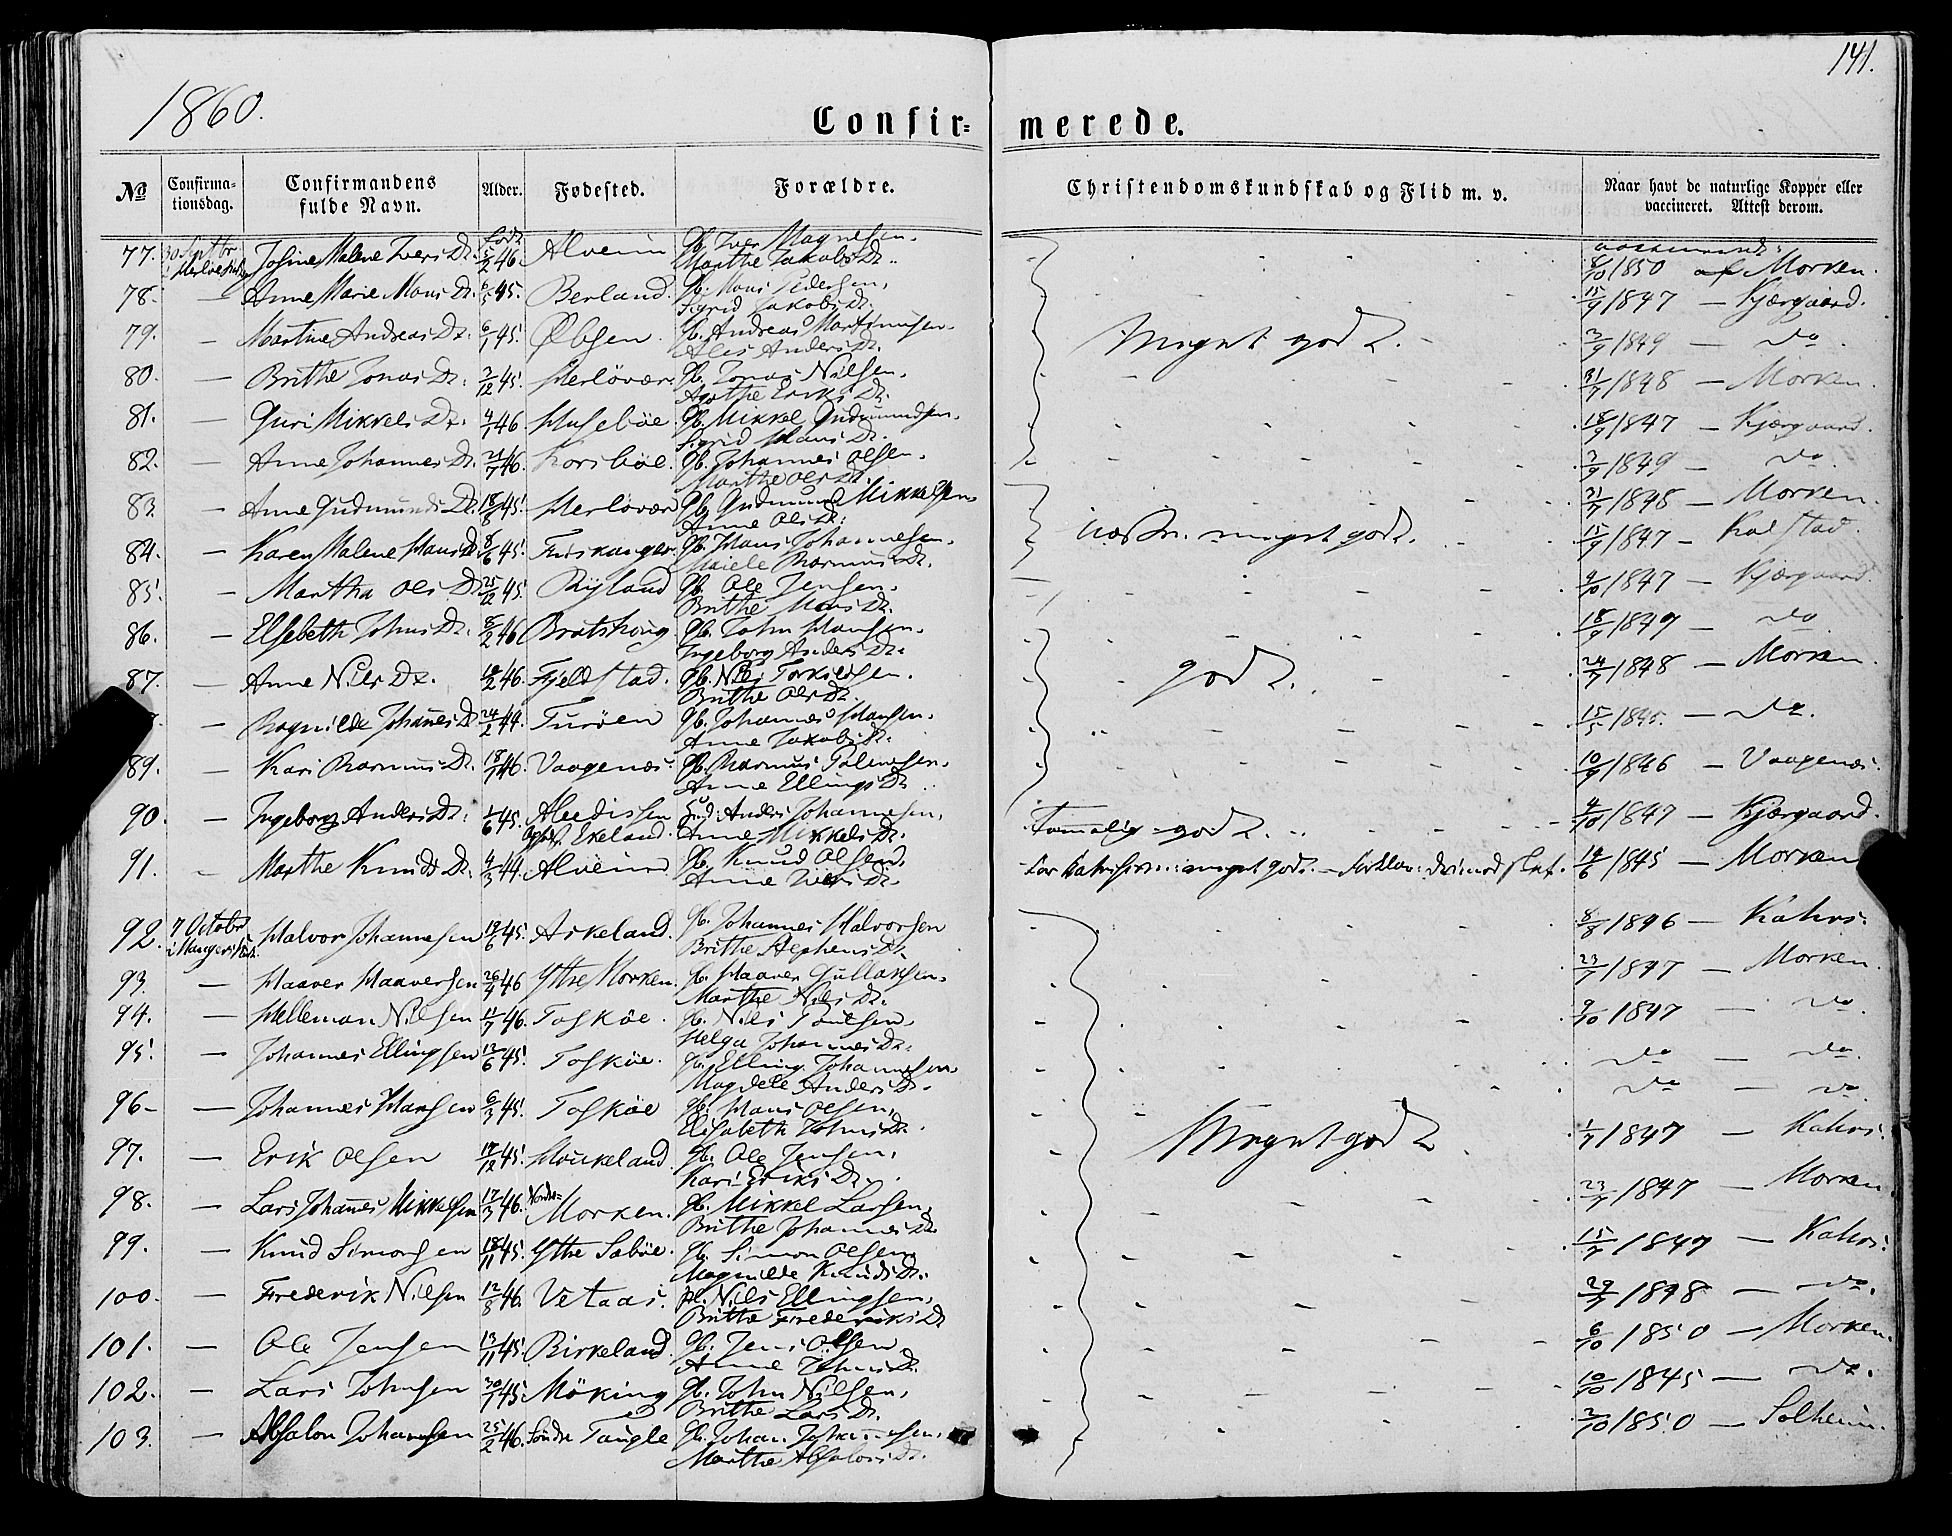 141.
1860.
Confir= merede.
No Confirma-tionsdag. Confirmandens fulde Navn. Alder. Fødested. Forældre. Christendomskundskab og Flid m. v. Naar havt de naturlige Kopper eller vaccineret. Attest derom.
77. 30 Septbr Josine Malene Ivers Dr. Født 5/2 46. Alvein Gb. Iver Magnesen. Marthe Jakobs Dr. vaccineret: 8/10 1850 af Morken.
78. — Anne Marie Mons Dr. 6/5 45. Berland. Gb. Mons Pedersen, Sigrid Jakobs Dr. 15/9 1847 — Kjærgaard.
79. — Martine Andreas Dr. 6/1 45. Gb. Andreas Martinusen. Anders Dr. Meget godt. 3/9 1849 — do.
80. — Brithe Jonas Dr. 2/12 45. Herløvær. Gb. Jonas Nilsen. Agathe Eriks Dr. 31/7 1848 — Morken.
81. — Guri Mikkels Dr. 4/7 46 Husebøe Gb. Mikkel Gudmundsen. Sigrid Hans Dr. 18/9 1847 — Kjærgaard.
82. — Anne Johannes Dr. 21/7 46. Gb. Johannes Olsen. Marthe Ols Dr. 3/9 1849 — do
83. — Anne Gudmunds Dr. 18/8 45. Herløvær Gb. Gudmund Mikkelsen Anne Ols Dr. 31/7 1848 — Morken.
84. — Karen Malene Hans Dr. 8/6 45. Gb. Hans Johannesen. Rasmus Dr. næsten meget godt. 15/9 1847 — Kolstad.
85. — Martha Ols Dr. 25/12 45. Ryland Gb. Ole Jensen. Brithe Mons Dr. 9/10 1847 — Kjærgaard.
86. — Elsebeth Johns Dr. 8/2 46 Bratshoug. Gb. John Hansen. Ingeborg Anders Dr. 18/9 1847 — do
87. — Anne Nils Dr. 46. Fjeldstad. Gb. Nils Torkilsen. Brithe Ols Dr. godt. 24/7 1848 — Morken.
— Ragnilde Johannes Dr. 24/2 44. Turøen Gb. Johannes Hansen. Anne Jakobs Dr. 15/5 1845. — do.
89. — Kari Rasmus Dr. 18/7 46. Vaagenæs. Gb. Rasmus Anne Ellings Dr. 10/9 1846 — Vaagenæs.
90. — Ingeborg Anders Dr. 1/6 45. Ekeland. Anders Johannesen. Anne Mikkels Dr. Temmelig godt. 4/10 1847 — Kjærgaard.
91. — Marthe Knuds Dr. 4/3 44. Alvein Gb. Knud Olsen. Anne Ivers Dr. meget godt. — 14/6 1845 — Morken
92. 7 Octobr i Manger Halvor Johannesen 19/6 45. Askeland. Gb. Johannes Halvorsen Brithe Stephens Dr. 8/8 1846 — Kahrs.
93. — Haaver Haaversen 46 Ytre Morken. Gb. Haaver Gullaksen. Marthe Nils Dr. 23/7 1847 — Morken.
94. — Helleman Nilsen 11/7 46. Toskøe. Gb. Nils Helga Johannes Dr. 9/10 1847 — do.
95. — Johannes Ellingsen 12/6 45. Toskøe. Gb. Elling Johannesen. Magdele Anders Dr. do — do.
96 — Johannes Hansen 6/3 45. Toskøe Gb. Hans Olsen. Elisabeth Johns Dr. do — do.
97. — Erik Olsen 17/12 45. Houkeland Gb. Ole Jensen. Kari Eriks Dr. Meget godt 1/7 1847 — Kahrs.
98. — Lars Johannes Mikkelsen 17/3 46. Nordre Morken. Gb. Mikkel Larsen. Brithe Johannes Dr. 23/7 1847 — Morken.
99. — Knud Simonsen 18/11 45. Ytre Sæbøe. Gb. Simon Olsen. Magnilde Knuds Dr. 15/7 1847 — Kahrs.
100. — Frederik Nilsen 12/8 46. Vetaas. Nils Ellingsen. Brithe Frederiks Dr 29/7 1848 — do.
101. — Ole Jensen 13/11 45. Birkeland Gb. Jens Olsen Anne Johns Dr. 6/10 1850 — Morken.
102. — Lars Johnsen 30/1 45. Møking Gb. John Nilsen. Brithe Lars Dr. 10/10 1845 — do.
103. — Absalon Johansen 25/2 46. Søndre Tangle Gb. Johan Johannesen. Marthe Absalons Dr. 2/10 1850 — Solheim.